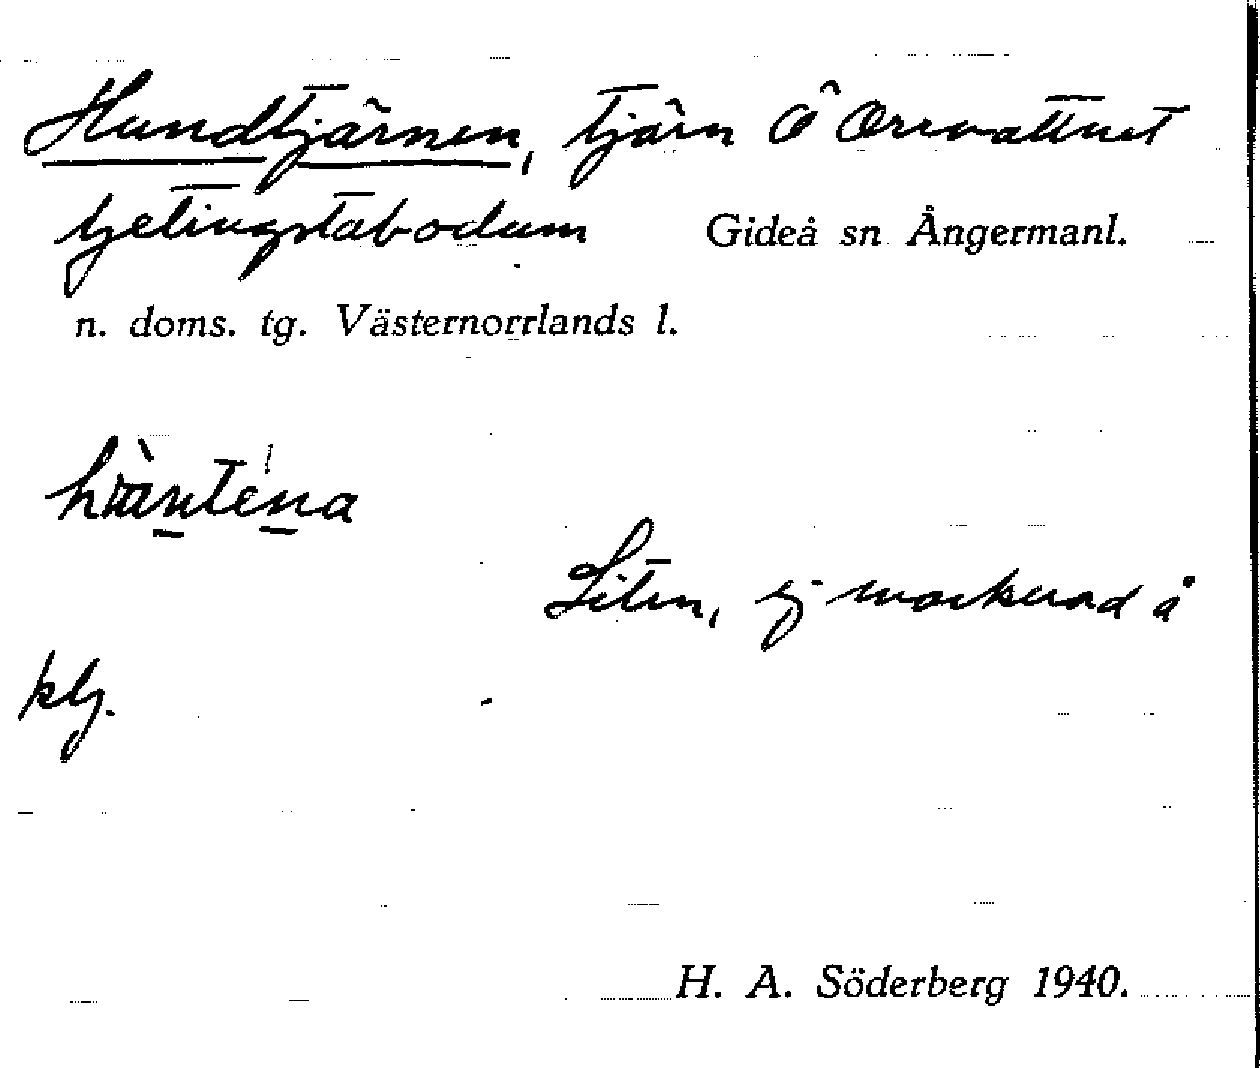 Hundtjärnen, tjärn Ö Orrvattnet
Gideå sn Ångermanl.
n. doms. tg. Västernorrlands l.
Liten, ej markerad å
klg.
H. A. Söderberg 1940.